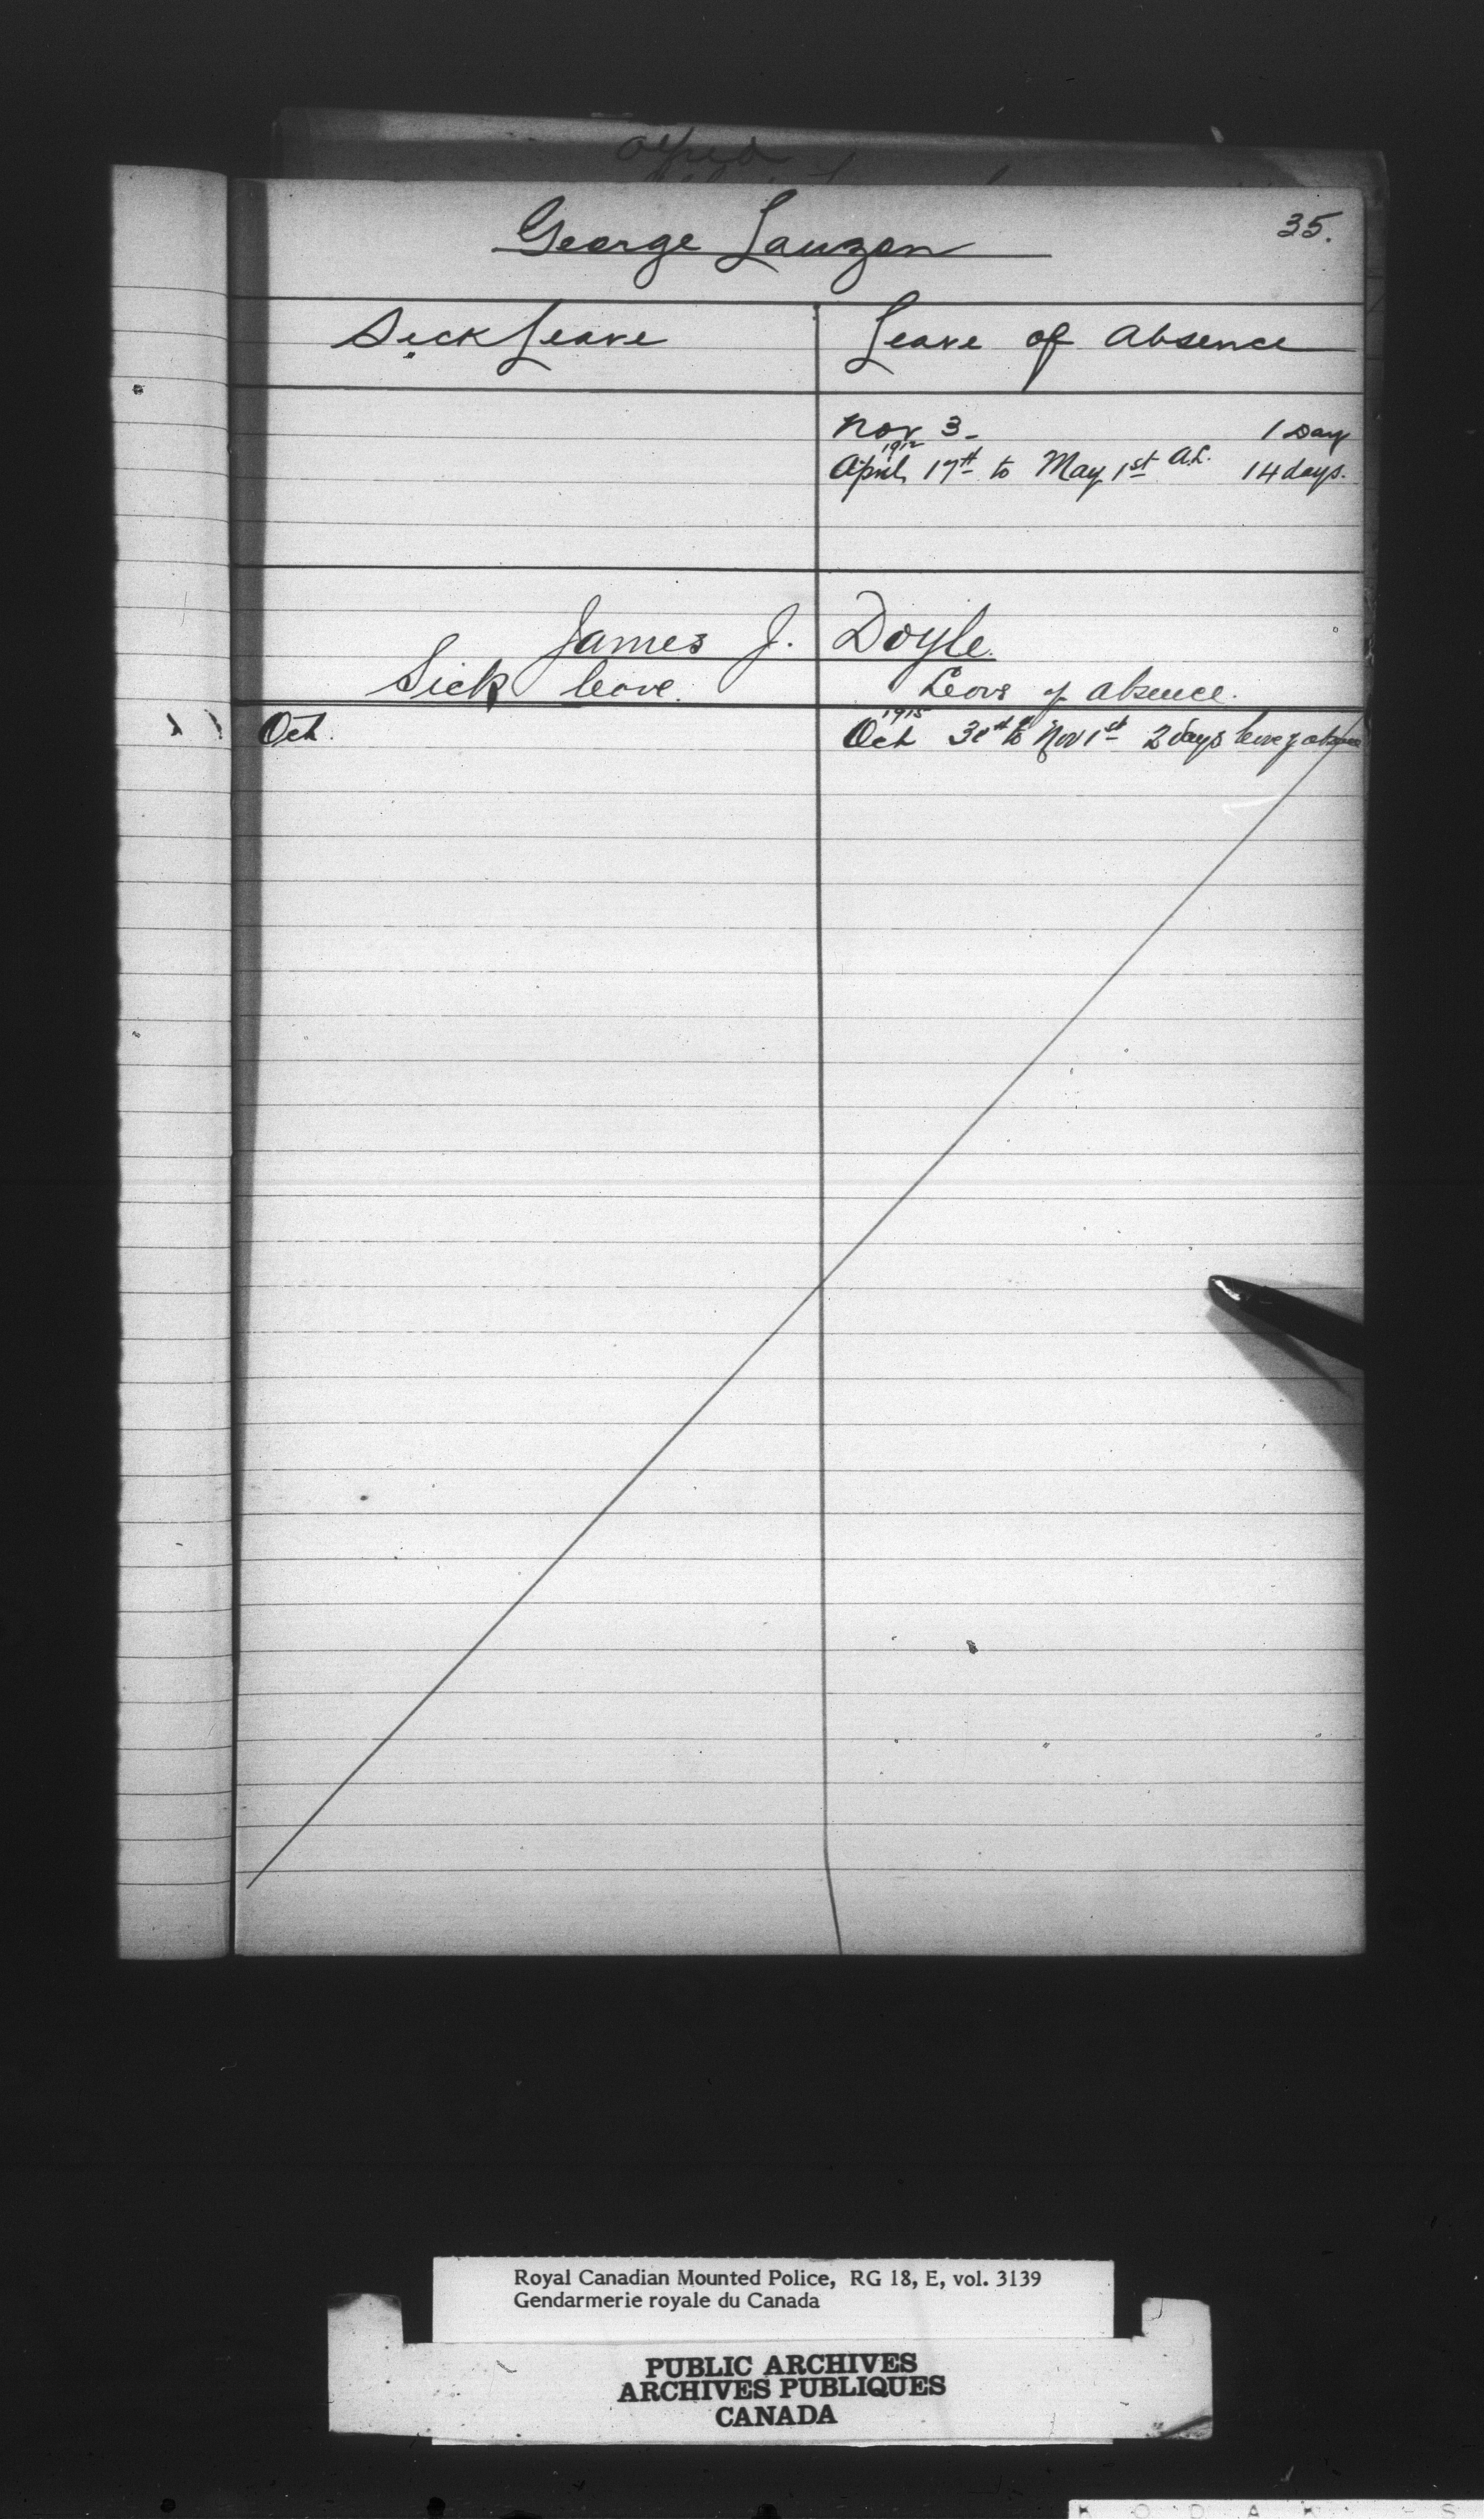 Alfred
35.
George Lauzon
Sick Leave Leave of absence
Nov 3- 1 Day
1912
April 17th to May 1st A.L. 14 days.
James J. Doyle.
Sick leave. Leave of absence.
1915
Oct. Oct 30th to Nov 1st 2 days leave of absence
Royal Canadian Mounted Police, RG 18, E, vol. 3139
Gendarmerie royale du Canada
PUBLIC ARCHIVES
ARCHIVES PUBLIQUES
CANADA
K O D A K S